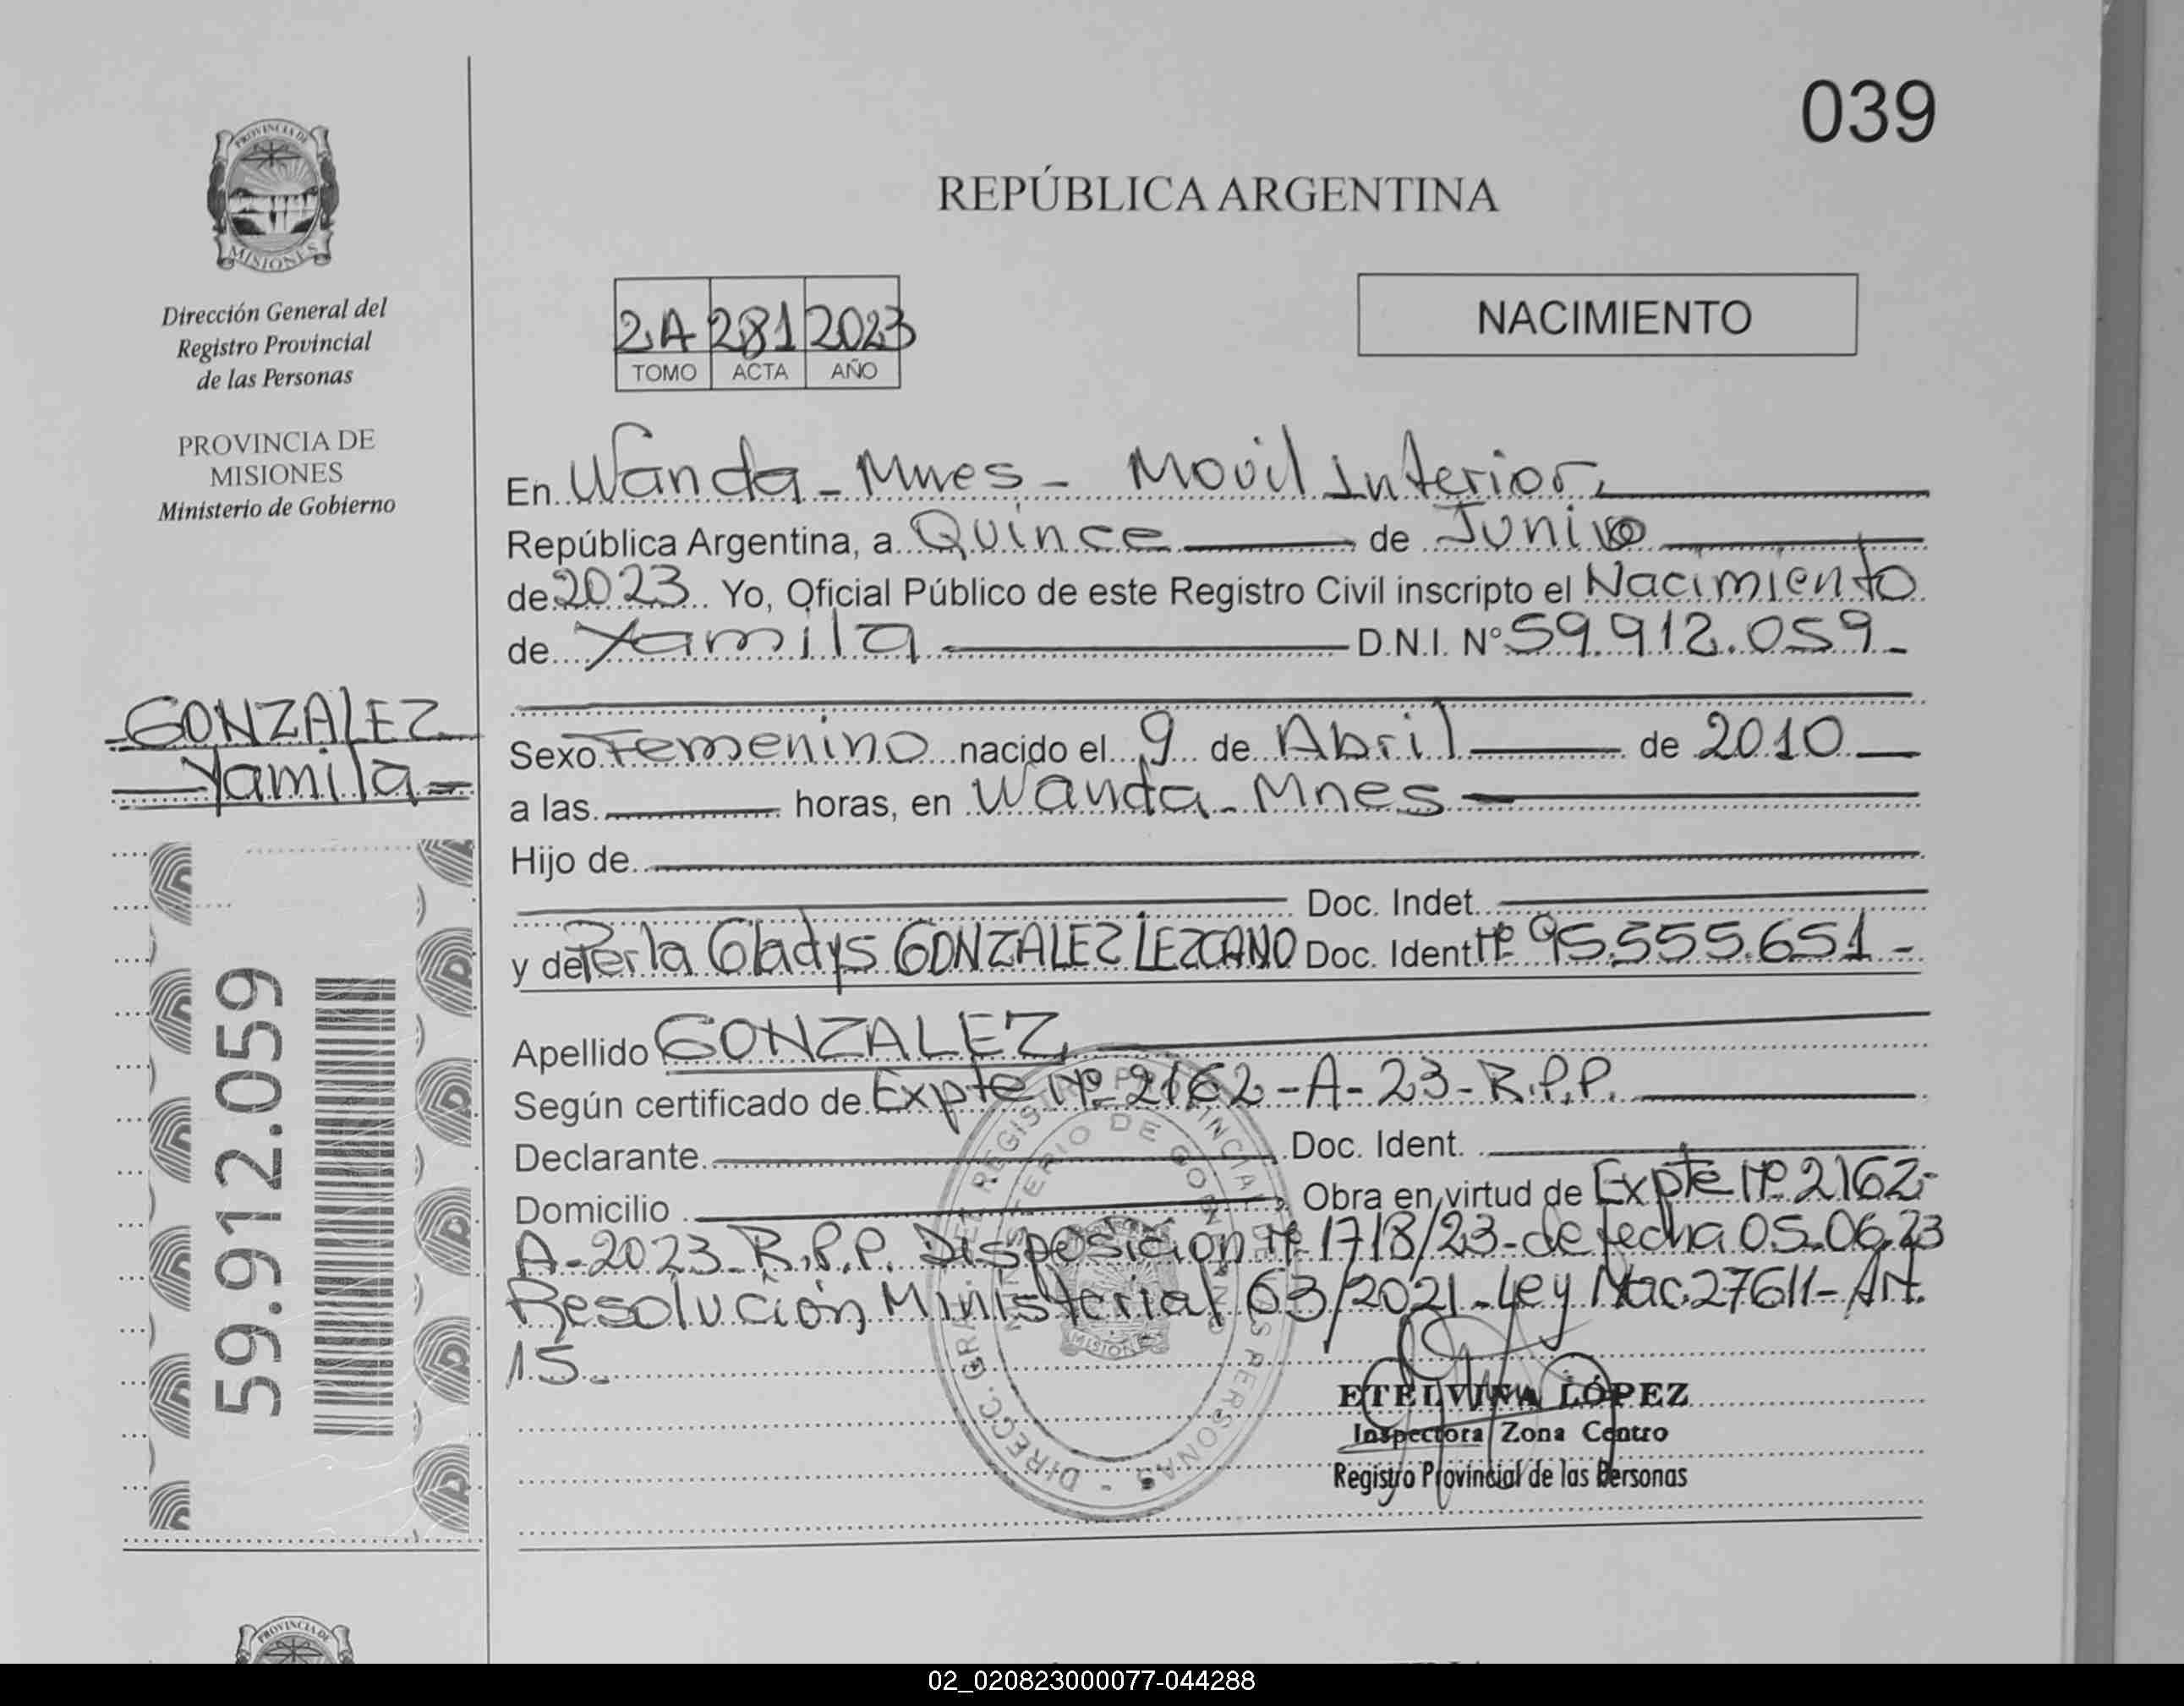 039
PROVINCIA DE
MISIONES
Dirección General del
Registro Provincial
de las Personas
PROVINCIA DE
MISIONES
Ministerio de Gobierno
GONZALEZ
Yamila
59.912.059
REPÚBLICA ARGENTINA
2A 281 2023
TOMO ACTA AÑO
NACIMIENTO
En Wanda - Mnes - Movil Interior,
República Argentina, a Quince de Junio
de 2023 Yo, Oficial Público de este Registro Civil inscripto el Nacimiento
de Yamila D.N.I. N° 59.912.059 -
Sexo Femenino nacido el 9 de Abril de 2010
a las horas, en Wanda - Mnes
Hijo de
Doc. Indet.
y de Perla Gladys GONZALEZ LEZCANO Doc. Ident Nº 95.555.651 -
Apellido GONZALEZ,
Según certificado de Expte Nº 2162 - A - 23 - R.P.P.
Declarante Doc. Ident.
Domicilio Obra en virtud de Expte Nº 2162-
A - 2023 - R.P.P. Disposición Nº 1718/23 - de fecha 05.06.23
Resolución Ministerial 63/2021 - Ley Nac 27611 - Art.
15 -
DIRECC. GRAL. DEL REGISTRO PROVINCIAL DE LAS PERSONAS
MINISTERIO DE GOBIERNO
MISIONES
ETELVINA LÓPEZ
Inspectora Zona Centro
Registro Provincial de las Personas
PROVINCIA DE
02_020823000077-044288